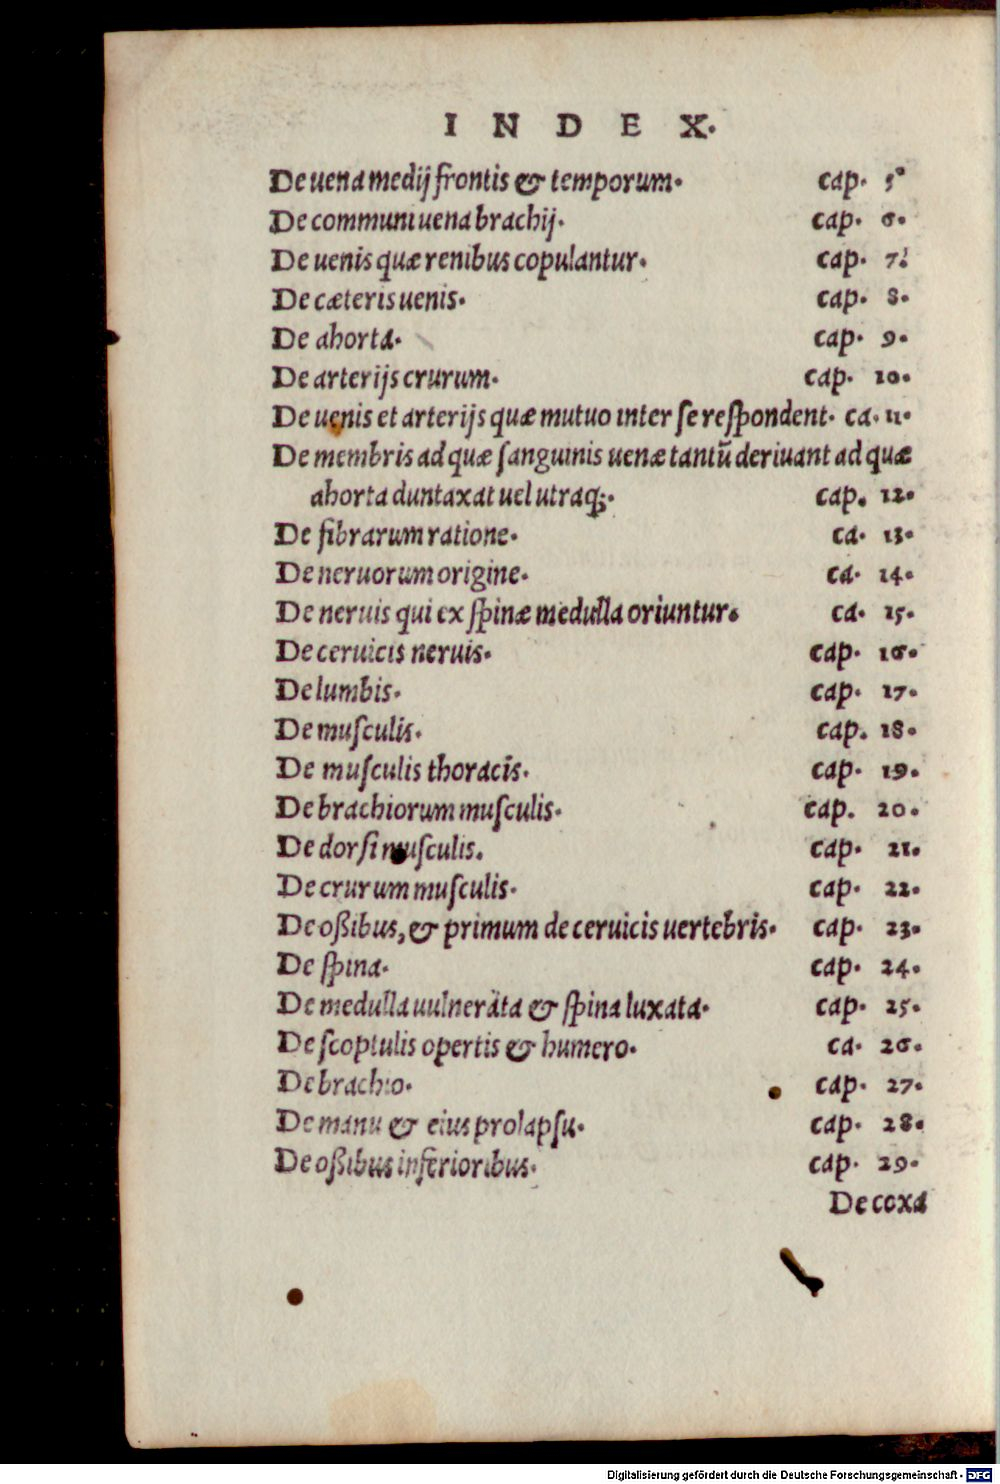 INDEX.
De uena medij frontis & temporum. cap. 5.
De communi uena brachij. cap. 6.
De uenis quæ renibus copulantur. cap. 7.
De cæteris uenis. cap. 8.
De ahorta. cap. 9.
De arterijs crurum. cap. 10.
De uenis et arterijs quæ mutuo inter se respondent. ca. 11.
De membris ad quæ sanguinis uenæ tantũ deriuant ad quæ
ahorta duntaxat uel utraq;. cap. 12.
De fibrarum ratione. ca. 13.
De neruorum origine. ca. 14.
De neruis qui ex spinæ medulla oriuntur. ca. 15.
De ceruicis neruis. cap. 16.
De lumbis. cap. 17.
De musculis. cap. 18.
De musculis thoracis. cap. 19.
De brachiorum musculis. cap. 20.
De dorsi musculis. cap. 21.
De crurum musculis. cap. 22.
De oßibus, & primum de ceruicis uertebris. cap. 23.
De spina. cap. 24.
De medulla uulnerata & spina luxata. cap. 25.
De scoptulis opertis & humero. ca. 26.
De brachio. cap. 27.
De manu & eius prolapsu. cap. 28.
De oßibus inferioribus. cap. 29.
De coxa
Digitalisierung gefördert durch die Deutsche Forschungsgemeinschaft - DFG